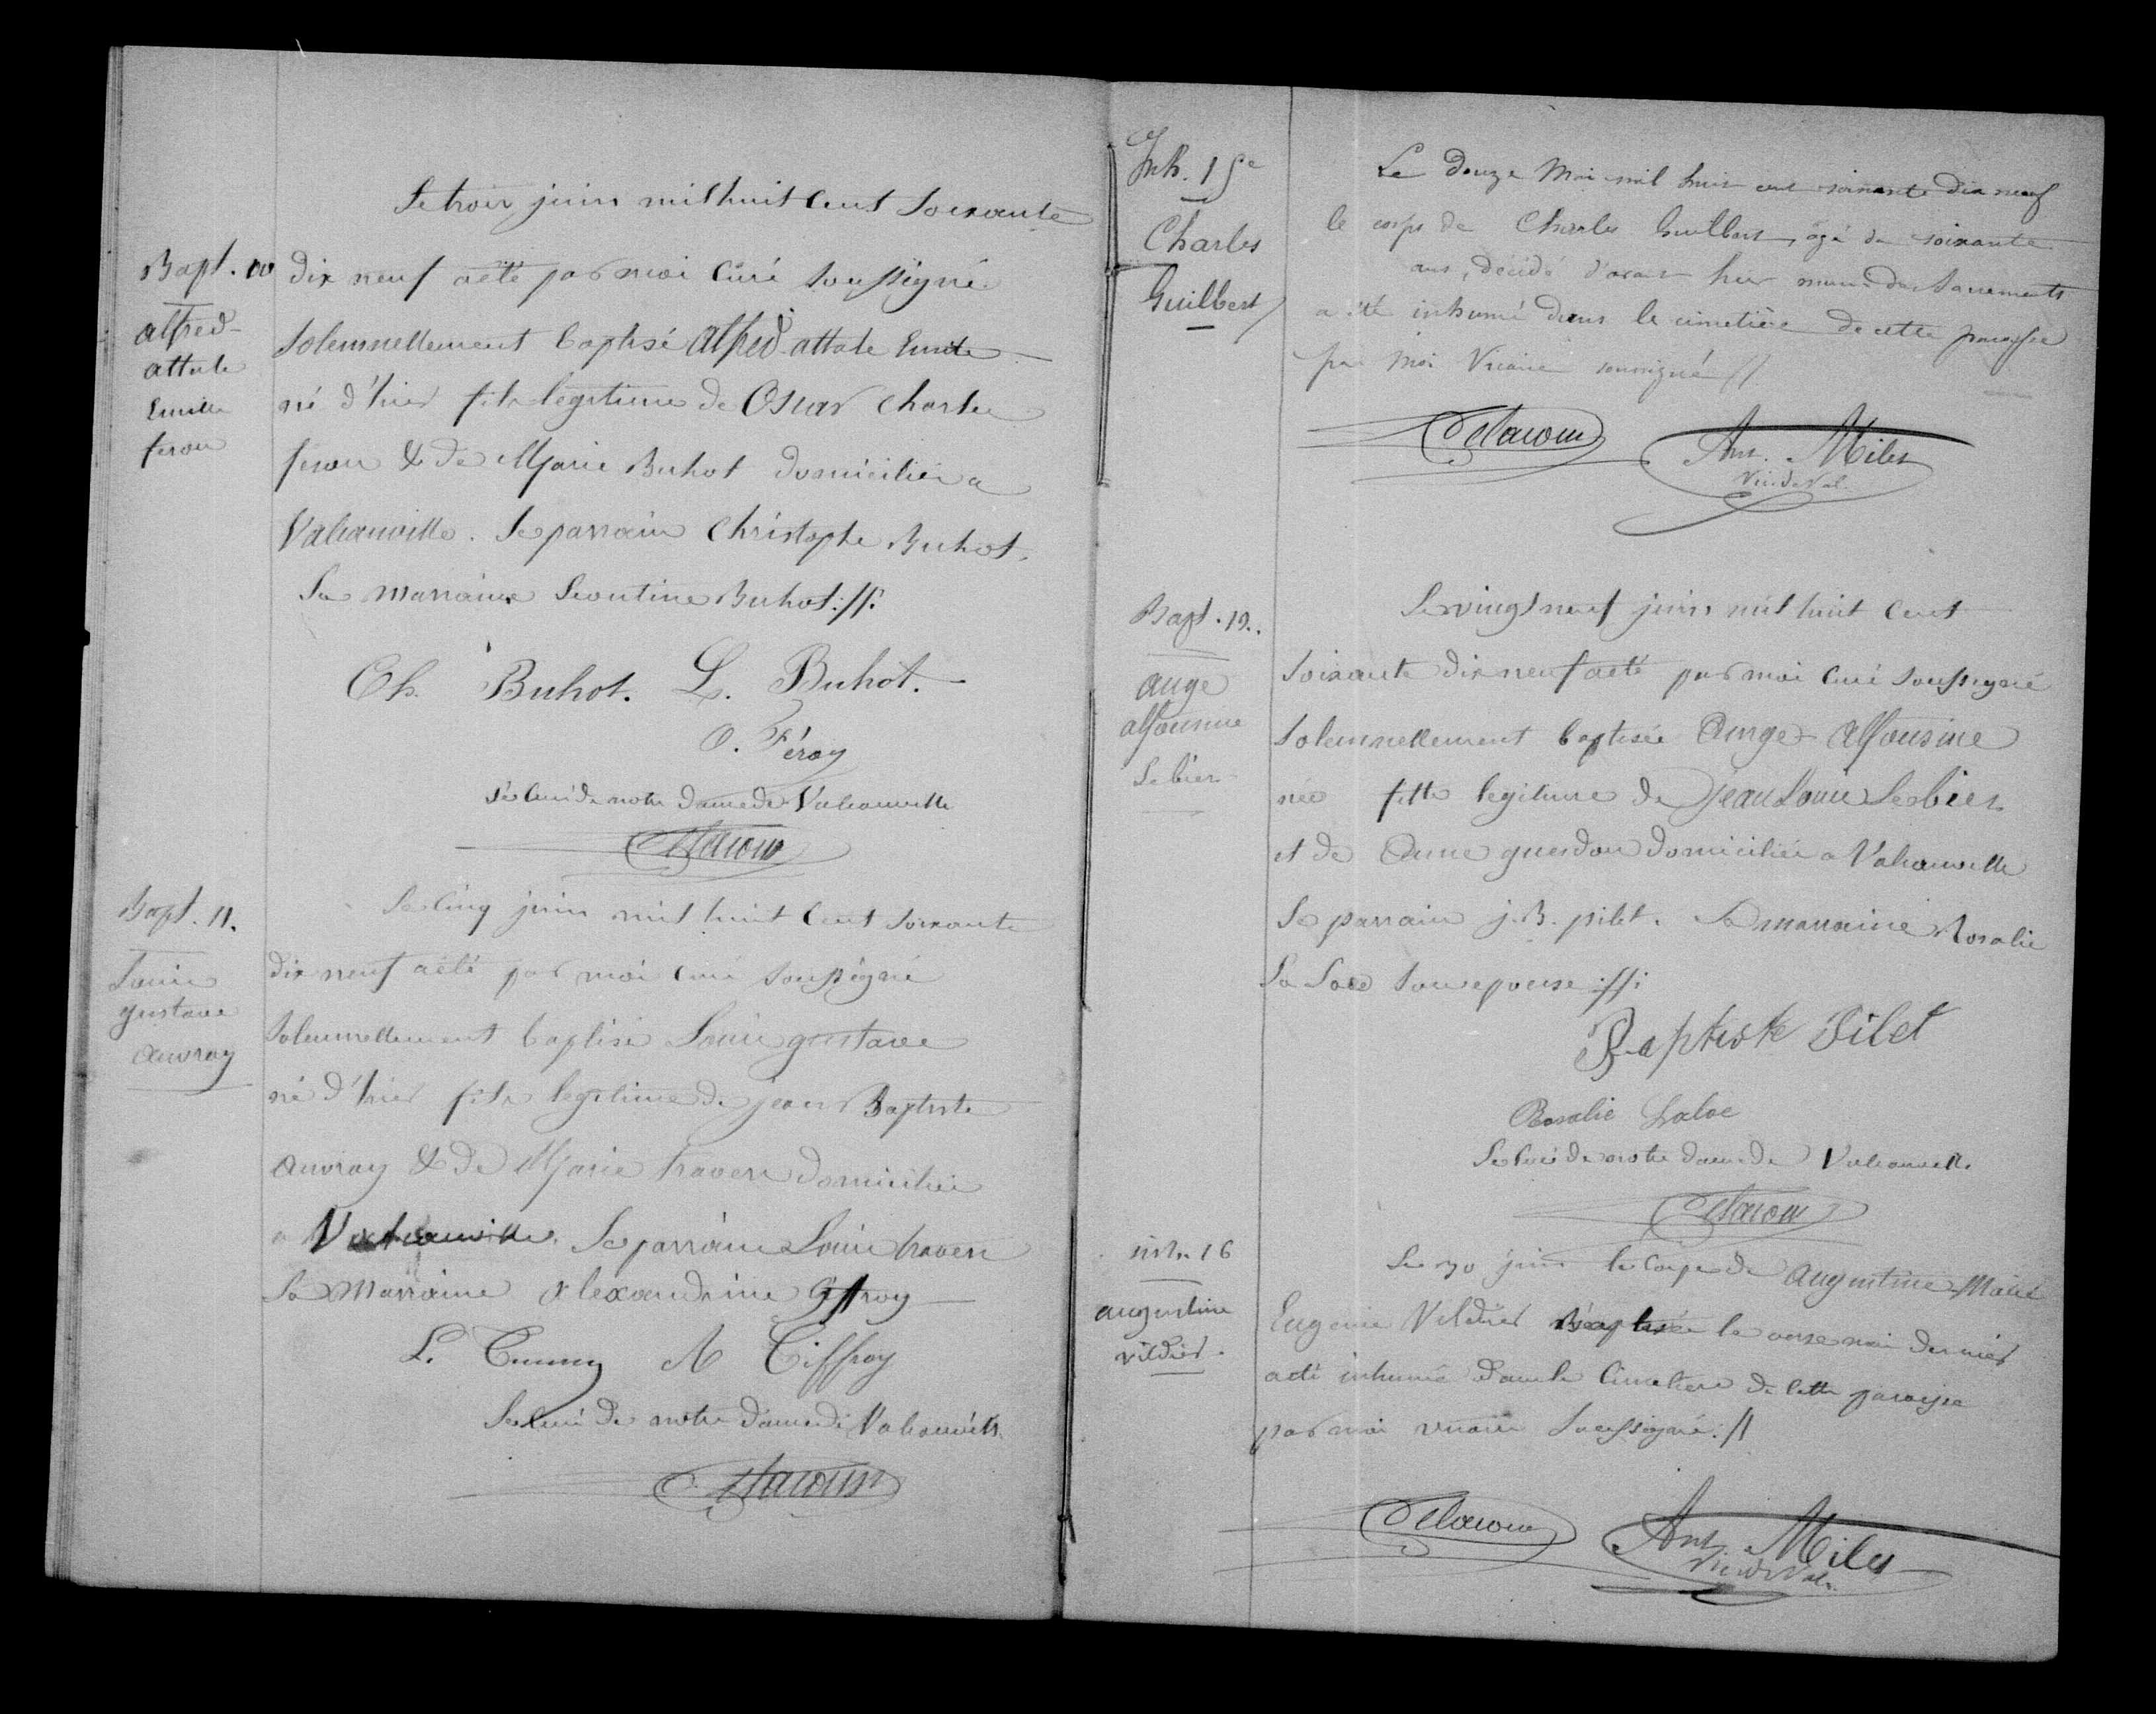 Le trois juin mil huit cent soixante
Bapt. 10
Alfred
attale
Emile
feron
dix neuf a été par moi curé soussigné
solennellement baptisé Alfred attale Emile
né d'hier fils legitime de Oscar Charles
feron & de Marie Buhot domiciliés a
Valcanville. Le parrain Christophe Buhot.
La marraine Leontine Buhot ://:
Ch. Buhot. L. Buhot.
O. Férey
Le Curé de notre dame de Valcanville
Bapt. 11.
Louis
gustave
Auvray
Le cinq juin mil huit cent soixante
dix neuf a été par moi curé soussigné
solennellement baptisé Louis gustave
né d'hier fils legitime de jean Baptiste
Auvray & de Marie travers domiciliés
a Valcanville. Le parrain Louis travers
La marraine alexandrine Giffroy
L. A Giffroy
Le Curé de notre dame de Valcanville
Inh. 15e
Charles
Guilbert
Le douze Mai mil huit cent soixante dix neuf
le corps de Charles Guilbert, âgé de soixante
ans, décédé d'avant hier muni des Sacrements
a été inhumé dans le cimetière de cette paroisse
par Moi Vicaire soussigné //
Ant. Miles
Vic. de Val.
Bapt. 12.
ange
alfonsine
Lebier
Le vingt neuf juin mil huit cent
soixante dix neuf a été par moi curé soussigné
solennellement baptisée Ange Alfonsine
née fille legitime de jean Louis Lebier
et de Anne quesdon domiciliés a Valcanville
Le parrain j. B. pilet. La marraine Rosalie
La Loe son epouse ://:
Baptiste Pilet
Rosalie Laloe
Le Curé de notre dame de Valcanville
inh. 16
augustine
vildier.
Le 30 juin le corps de augustine Marie
Eugenie Vildier Baptisée le onze mai dernier
a été inhumé dans le Cimetiere de cette paroisse
par moi vicaire soussigné ://
Ant. Miles
Vic. de Val.